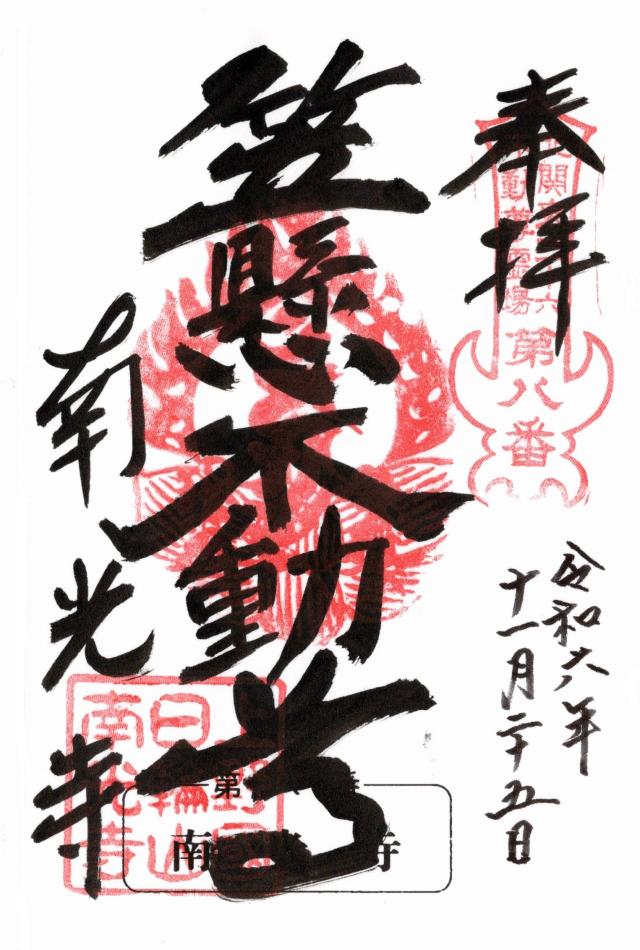 奉拝
北関東三十六
不動尊霊場
第八番
令和六年
十一月二十五日
笠懸不動尊
南光寺
日輪山
南光寺
第八番
南光寺